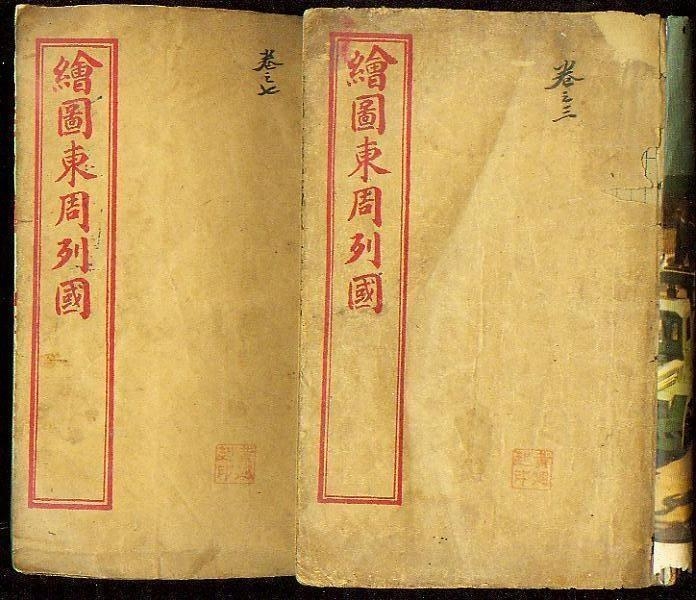 繪圖東周列國
卷之七
繪圖東周列國
卷之三